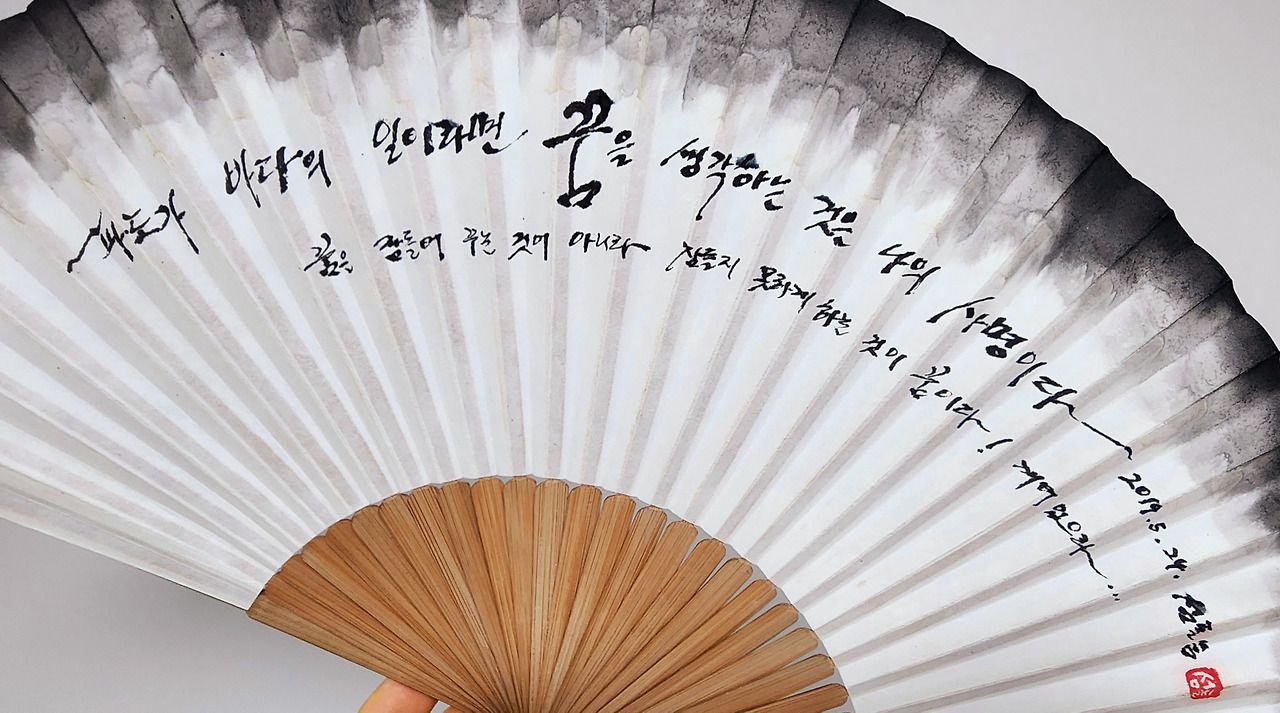 파도가 바다의 일이라면 꿈을 생각하는 것은 나의 사명이다
꿈은 잠들어 꾸는 것이 아니라 잠들지 못하게 하는 것이 꿈이다! 깨어 있으라...
2019. 5. 24.